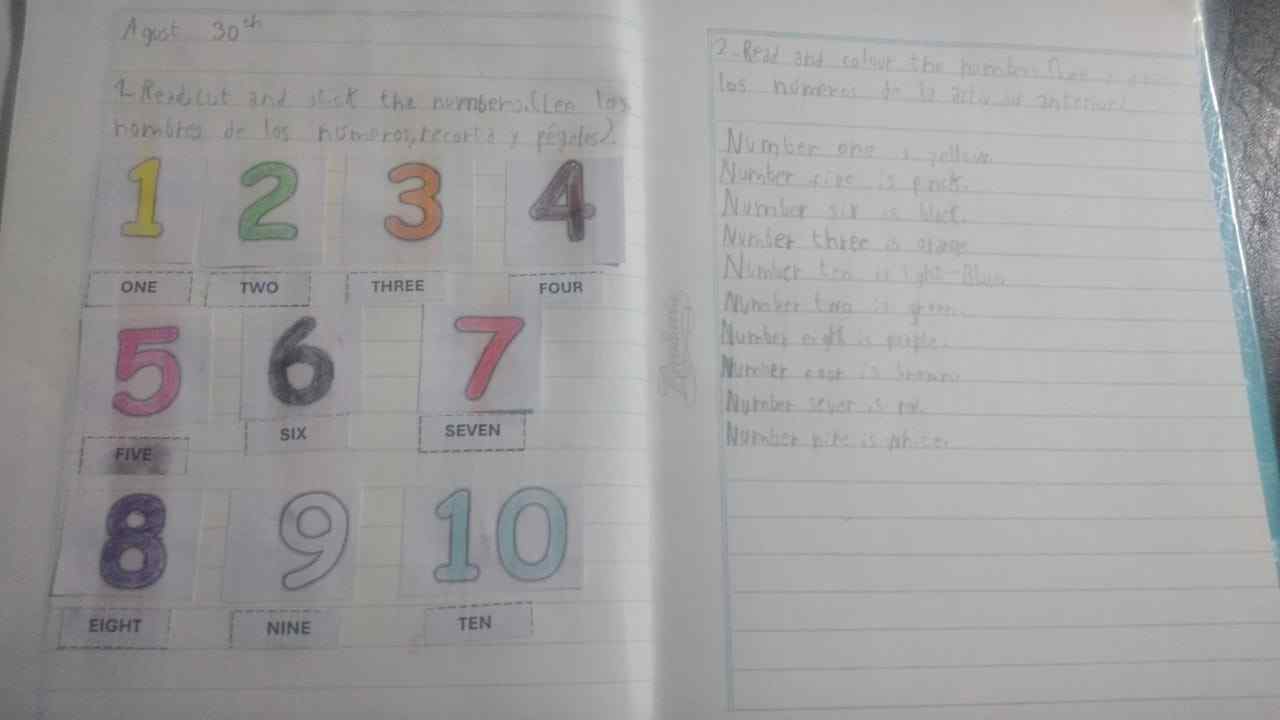 Agost 30th
1. Read, cut and stick the numbers. (Lee los
nombres de los números, recorta y pégalos).
1 2 3 4
ONE TWO THREE FOUR
5 6 7
FIVE SIX SEVEN
8 9 10
EIGHT NINE TEN
2. Read and colour the numbers. (Lee y
los números de la actividad anterior)
Number one is yellow.
Number five is pink.
Number six is black.
Number three is orange
Number ten is light-Blue
Number two is green.
Number eight is purple.
Number is brown
Number seven is red.
Number nine is white.